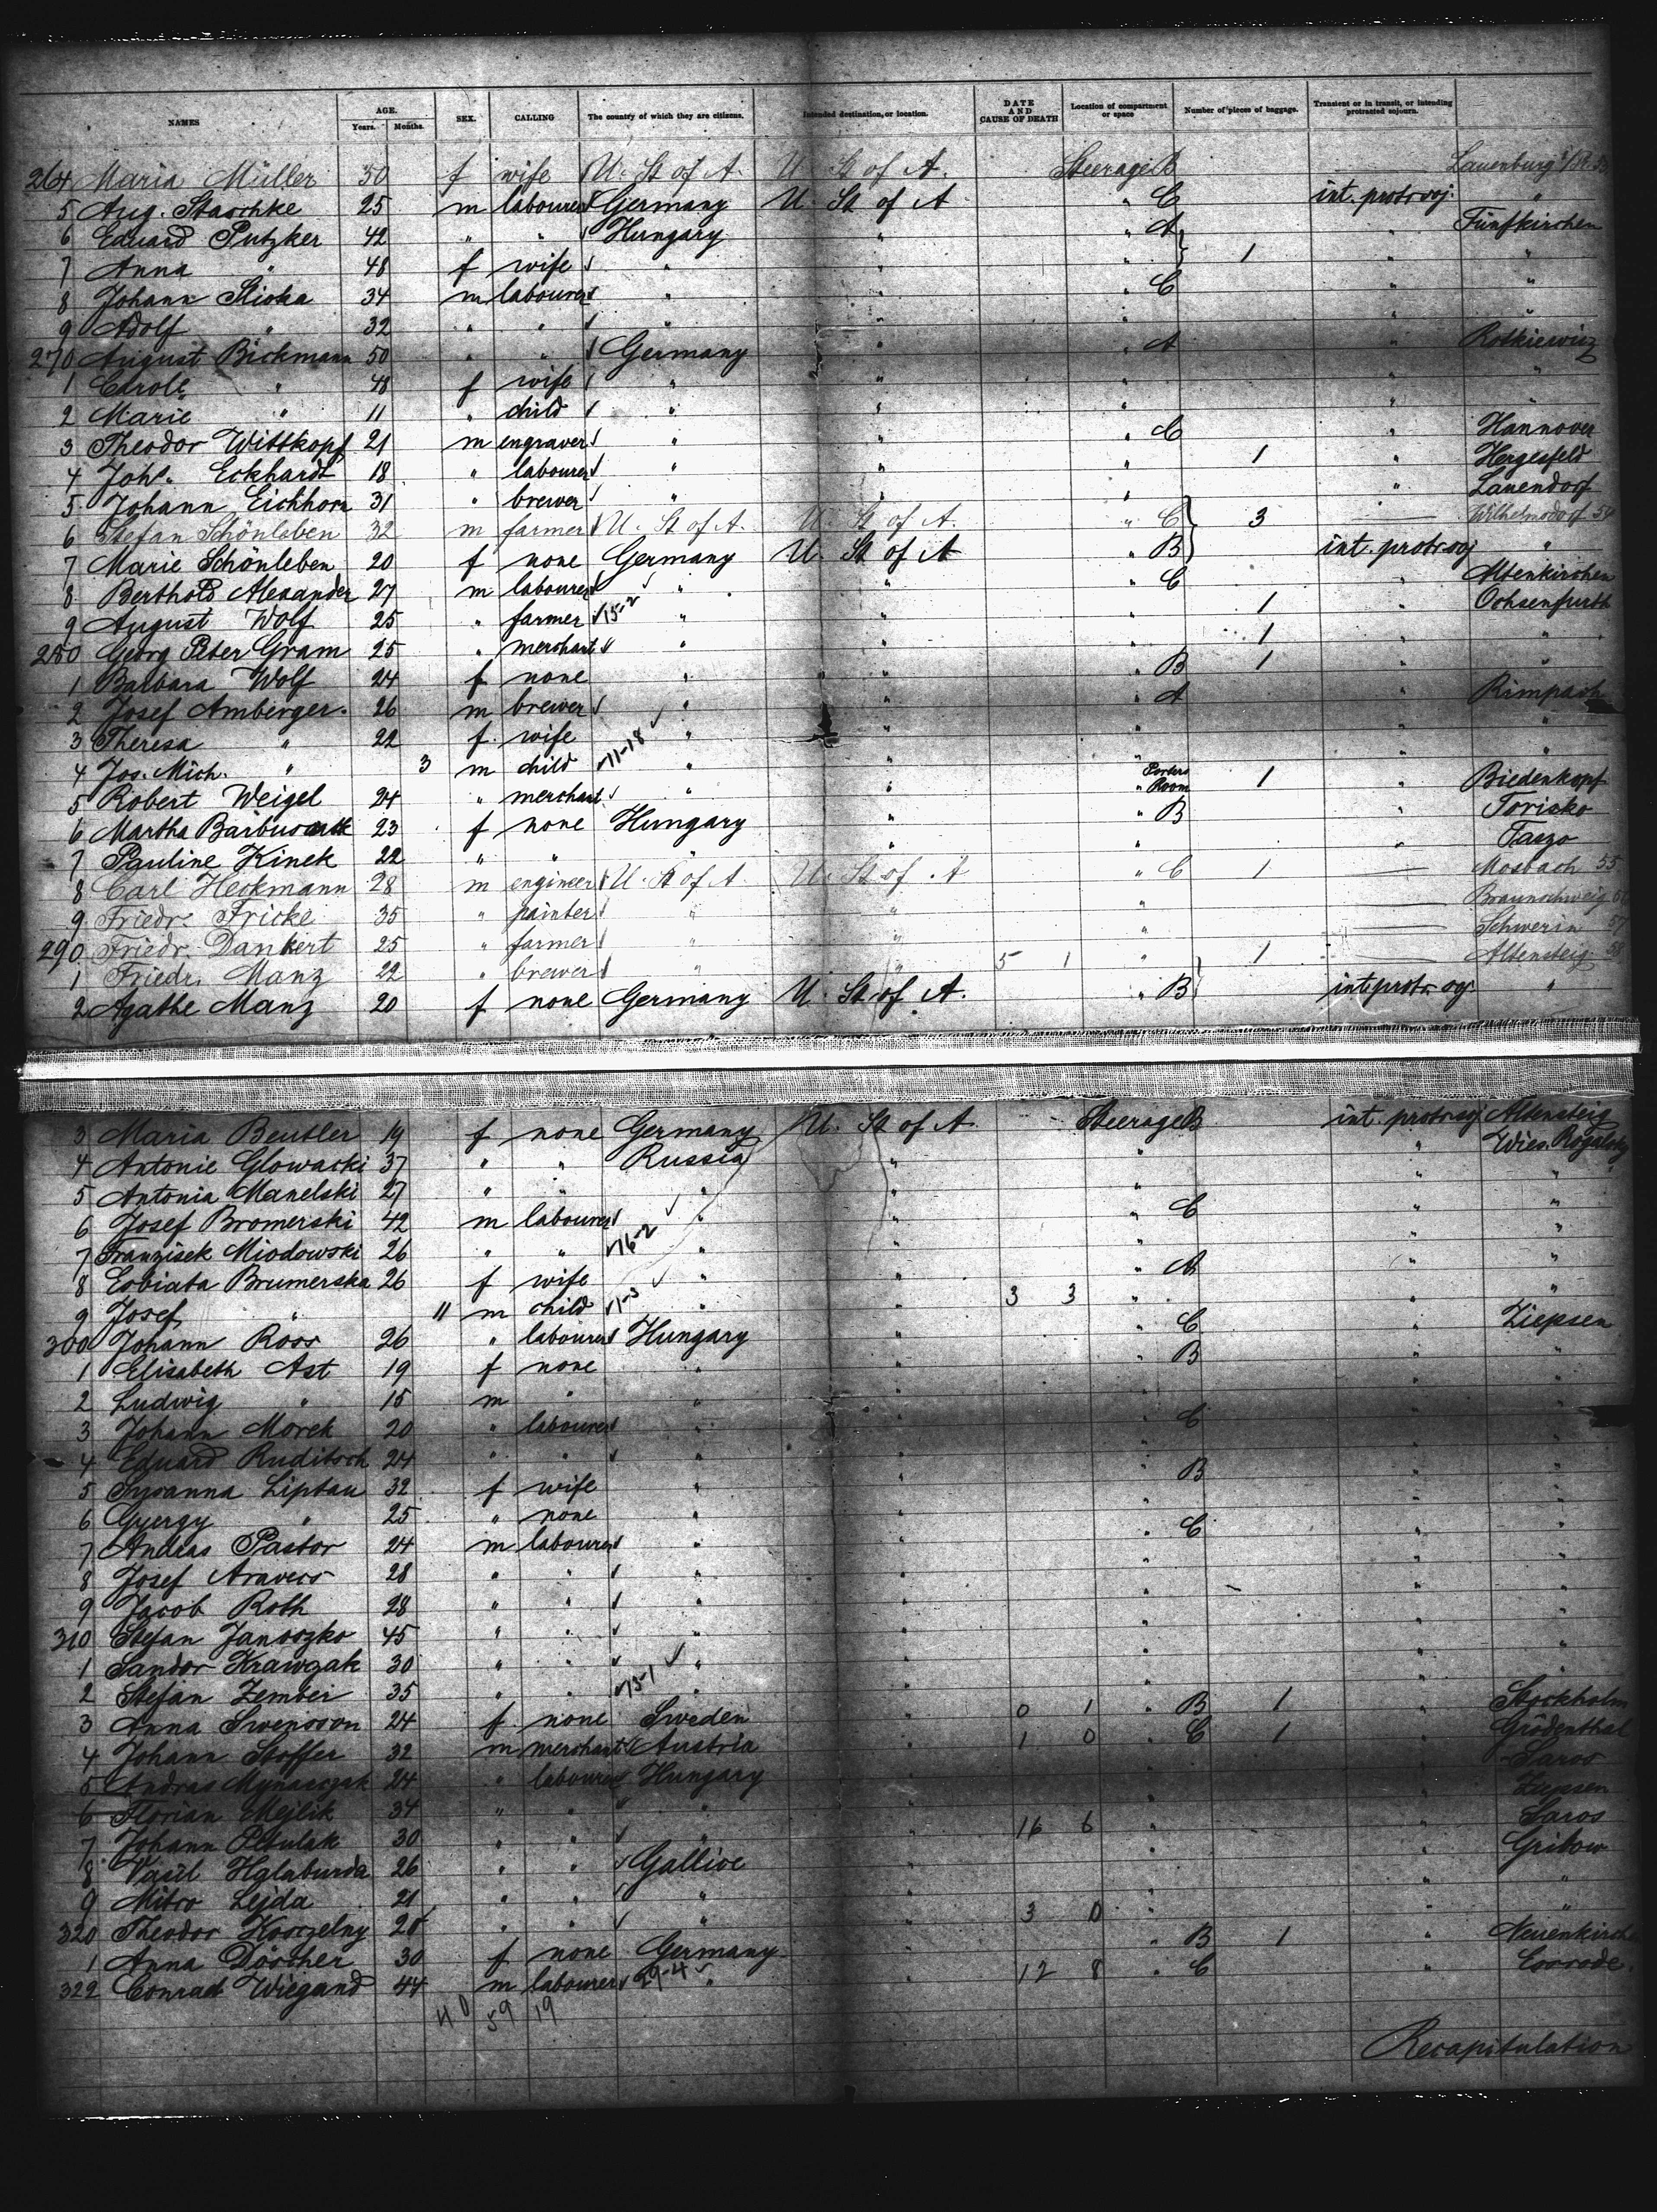 NAMES AGE. Years. Months. SEX. CALLING The country of which they are citizens. Intended destination, or location. DATE AND CAUSE OF DEATH Location of compartment or space Number of pieces of baggage. Transient or in transit, or intending protracted sojourn.
264 Maria Müller 50 f wife U. St of A. U. St of A. Steerage B — Lauenburg
5 Aug. Staschke 25 m labourer Germany U. St of A " C int. protr. soj. "
6 Eduard Putzker 42 " " Hungary " " A " Fünfkirchen
7 Anna " 48 f wife " " " 1 " "
8 Johann Skioka 34 m labourer " " " C " "
9 Adolf " 32 " " " " " " "
270 August Bickmann 50 " " Germany " " A " Rotkiewicz
1 Carole " 48 f wife " " " " "
2 Marie " 11 " child " " " " "
3 Theodor Wittkopf 21 m engraver " " " C " Hannover
4 Johs. Eckhardt 18 " labourer " " " 1 " Hergesfeld
5 Johann Eichhorn 31 " brewer " " " " Lauendorf
6 Stefan Schönleben 32 m farmer U. St of A. U. St of A. " C 3 — Wilhelmsdorf 54
7 Marie Schönleben 20 f none Germany U. St of A " B int. protr. soj "
8 Berthold Alexander 27 m labourer " " " C " Altenkirchen
9 August Wolf 25 " farmer 15-2 " " " 1 " Ochsenfurth
280 Georg Peter Gram 25 " merchant " " " 1 " "
1 Barbara Wolf 24 f none " " " B 1 " "
2 Josef Amberger. 26 m brewer " " " A " Rimpach
3 Theresa " 22 f. wife " " " " "
4 Jos. Mich. " 3 m child 11-18 " " " " "
5 Robert Weigel 24 " merchant " " " Porters Room 1 " Biedenkopf
6 Martha Barbuscak 23 f none Hungary " " B " Torisko
7 Pauline Kinek 22 " " " " " " Taszo
8 Carl Heckmann 28 m engineer U. St of A U. St of A " C 1 — Mosbach 55
9 Friedr. Fricke 35 " painter " " " — Braunschweig 56
290 Friedr. Dankert 25 " farmer " " " — Schwerin 57
1 Friedr. Manz 22 " brewer " " 5 1 " 1 — Altensteig 58
2 Agathe Manz 20 f none Germany U. St of A. " B int. protr. soj. "
3 Maria Beutler 19 f none Germany U. St of A. Steerage B int. protr. soj Altensteig
4 Antonie Glowacki 37 " " Russia " " " Wies. Rogalsky
5 Antonia Manelski 27 " " " " " " "
6 Josef Bromerski 42 m labourer " " " C " "
7 Franzisek Miodowski 26 " " 16-2 " " " " "
8 Esbiata Brumerska 26 f wife " " " A " "
9 Josef " 11 m child 1-3 " " 3 3 " " "
300 Johann Ross 26 " labourer Hungary " " C " Ziepsen
1 Elisabeth Ast 19 f none " " " B " "
2 Ludwig " 15 m " " " " " "
3 Johann Morek 20 " labourer " " " C " "
4 Eduard Ruditsch 24 " " " " " " "
5 Susanna Liptau 32 f wife " " " B " "
6 Gyergy " 25 " none " " " " "
7 Andras Pastor 24 m labourer " " " C " "
8 Josef Aravecs 28 " " " " " " "
9 Jacob Roth 28 " " " " " " "
310 Stefan Janoszko 45 " " " " " " "
1 Sandor Krawczak 30 " " " " " " "
2 Stefan Zember 35 " " 13-1 " " " " "
3 Anna Swensson 24 f. none Sweden " 0 1 " B 1 " Stockholm
4 Johann Stoffer 32 m merchant Austria " 1 0 " C 1 " Grödenthal
5 Andras 24 " labourer Hungary " " " Saros
6 Florian Mejlik 34 " " " " " " Ziepsen
7 Johann Petulak 30 " " " " 16 6 " " Saros
8 Vasil Hglaburda 26 " " Gallice " " " Gribow
9 Mitro Lejda 21 " " " " " " "
320 Theodor Koszelny 28 " " " " 3 0 " " "
1 Anna Döscher 30 f none Germany " " B 1 " Neuenkirch
322 Conrad Wiegand 44 m labourer 29-4 " " 12 8 " C "
40 59 19
Recapitulation